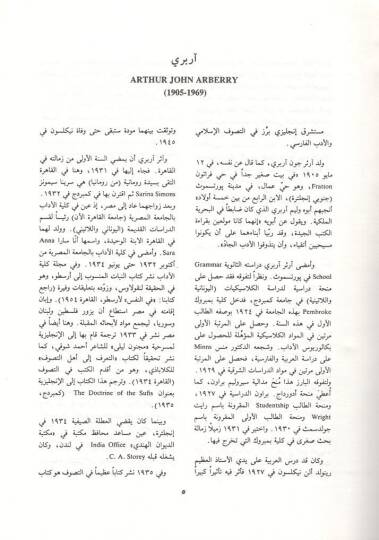 آربري
ARTHUR JOHN ARBERRY
(1905-1969)
مستشرق إنجليزي برّز في التصوف الإسلامي
والأدب الفارسي.
ولد آرثر جون آربري، كما قال عن نفسه، في ١٢
مايو ١٩٠٥ «في بيت صغير جداً في حي فراتون
Fratton، وهو حيّ عمال، في مدينة پورتسموث
(جنوبي إنجلترة)، الابن الرابع من بين خمسة أولاده
أنجبهم أبوه وليم آربري الذي كان ضابطاً في البحرية
الملكية. ويقول عن أبويه «إنهما كانا مولعين بقراءة
الكتب الجيدة، وقد ربّيا أبناءهما على أن يكونوا
مسيحيين أتقياء، وأن يتذوقوا الأدب الجادّ».
وأمضى آربري دراسته الثانوية Grammar
School في پورتسموث. ونظراً لتفوقه فقد حصل على
منحة دراسية لدراسة الكلاسيكيات (اليونانية
واللاتينية) في جامعة كمبردج، فدخل كلية پمبروك
Pembroke بهذه الجامعة في ١٩٢٤ بوصفه الطالب
الأول في هذه السنة. وحصل على المرتبة الأولى
مرتين في المواد الكلاسيكية المؤهلة للحصول على
بكالوريوس الآداب. وشجعه الدكتور منس Minns
على دراسة العربية والفارسية، فحصل على المرتبة
الأولى مرتين في مواد الدراسات الشرقية في ١٩٢٩.
ولتفوقه البارز هذا مُنح مدالية سيروليم براون، كما
أُعطي منحة أدورداج. براون الدراسية في ١٩٢٧،
ومنحة الطالب Studentship المقرونة باسم رايت
Wright ومنحة الطالب الأولى المقرونة باسم
جولدسمث في ١٩٣٠. واختير في ١٩٣١ زميلاً زمالة
بحث صغرى في كلية پمبروك التي تخرج فيها.
وكان قد درس العربية على يدي الأستاذ العظيم
رينولد ألن نيكلسون في ١٩٢٧ فأثر فيه تأثيراً كبيراً
وتوثقت بينهما مودة ستبقى حتى وفاة نيكلسون في
١٩٤٥.
وآثر آربري أن يمضي السنة الأولى من زمالته في
القاهرة. فجاء إليها في ١٩٣١، وهنا في القاهرة
التقى بسيدة رومانية (من رومانيا) هي سرينا سيمونز
Sarina Simons ثم اقترن بها في كمبردج في ١٩٣٢.
وبعد زواجهما عاد إلى مصر، إذ عين في كلية الآداب
بالجامعة المصرية (جامعة القاهرة الآن) رئيساً لقسم
الدراسات القديمة (اليوناني واللاتيني). وولد لهما
في القاهرة الابنة الوحيدة، واسمها آنّا سارا Anna
Sara. وأمضى في كلية الآداب بالجامعة المصرية من
أكتوبر ١٩٣٢ حتى يونيو ١٩٣٤. وفي مجلة كلية
الآداب نشر كتاب النبات المنسوب إلى أرسطو، وهو
في الحقيقة لنقولاوس، وزوّده بتعليقات وفيرة (راجع
كتابنا: «في النفس» لأرسطو، القاهرة ١٩٥٤). وإبان
إقامته في مصر استطاع أن يزور فلسطين ولبنان
وسوريا، ليجمع مواد لأبحاثه المقبلة. وهنا أيضاً في
مصر نشر في ١٩٣٣ ترجمة قام بها إلى الإنجليزية
لمسرحية «مجنون ليلى» للشاعر أحمد شوقي، كما
نشر تحقيقاً لكتاب «التعرف إلى أهل التصوف»
للكلاباذي، وهو من أقدم الكتب في التصوف
(القاهرة ١٩٣٤). وترجم هذا الكتاب إلى الإنجليزية
بعنوان The Doctrine of the Sufis (كمبردج،
١٩٣٥).
وبينما كان يقضي العطلة الصيفية ١٩٣٤ في
إنجلترة، عين مساعد محافظ مكتبة في «مكتبة
الديوان الهندي» India Office في لندن، وكان
يشغله قبله C. A. Storey.
وفي ١٩٣٥ نشر كتاباً عظيماً في التصوف هو كتاب
٥